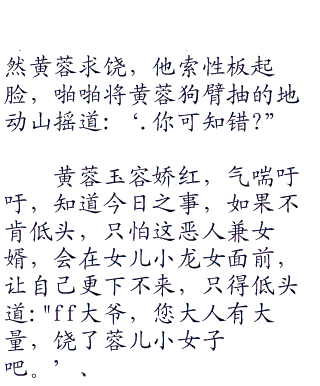 然黄蓉求饶，他索性板起
脸，啪啪将黄蓉狗臂抽的地
动山摇道：‘.你可知错?”
黄蓉玉容娇红，气喘吁
吁，知道今日之事，如果不
肯低头，只怕这恶人兼女
婿，会在女儿小龙女面前，
让自己更下不来，只得低头
道："ff大爷，您大人有大
量，饶了蓉儿小女子
吧。’、